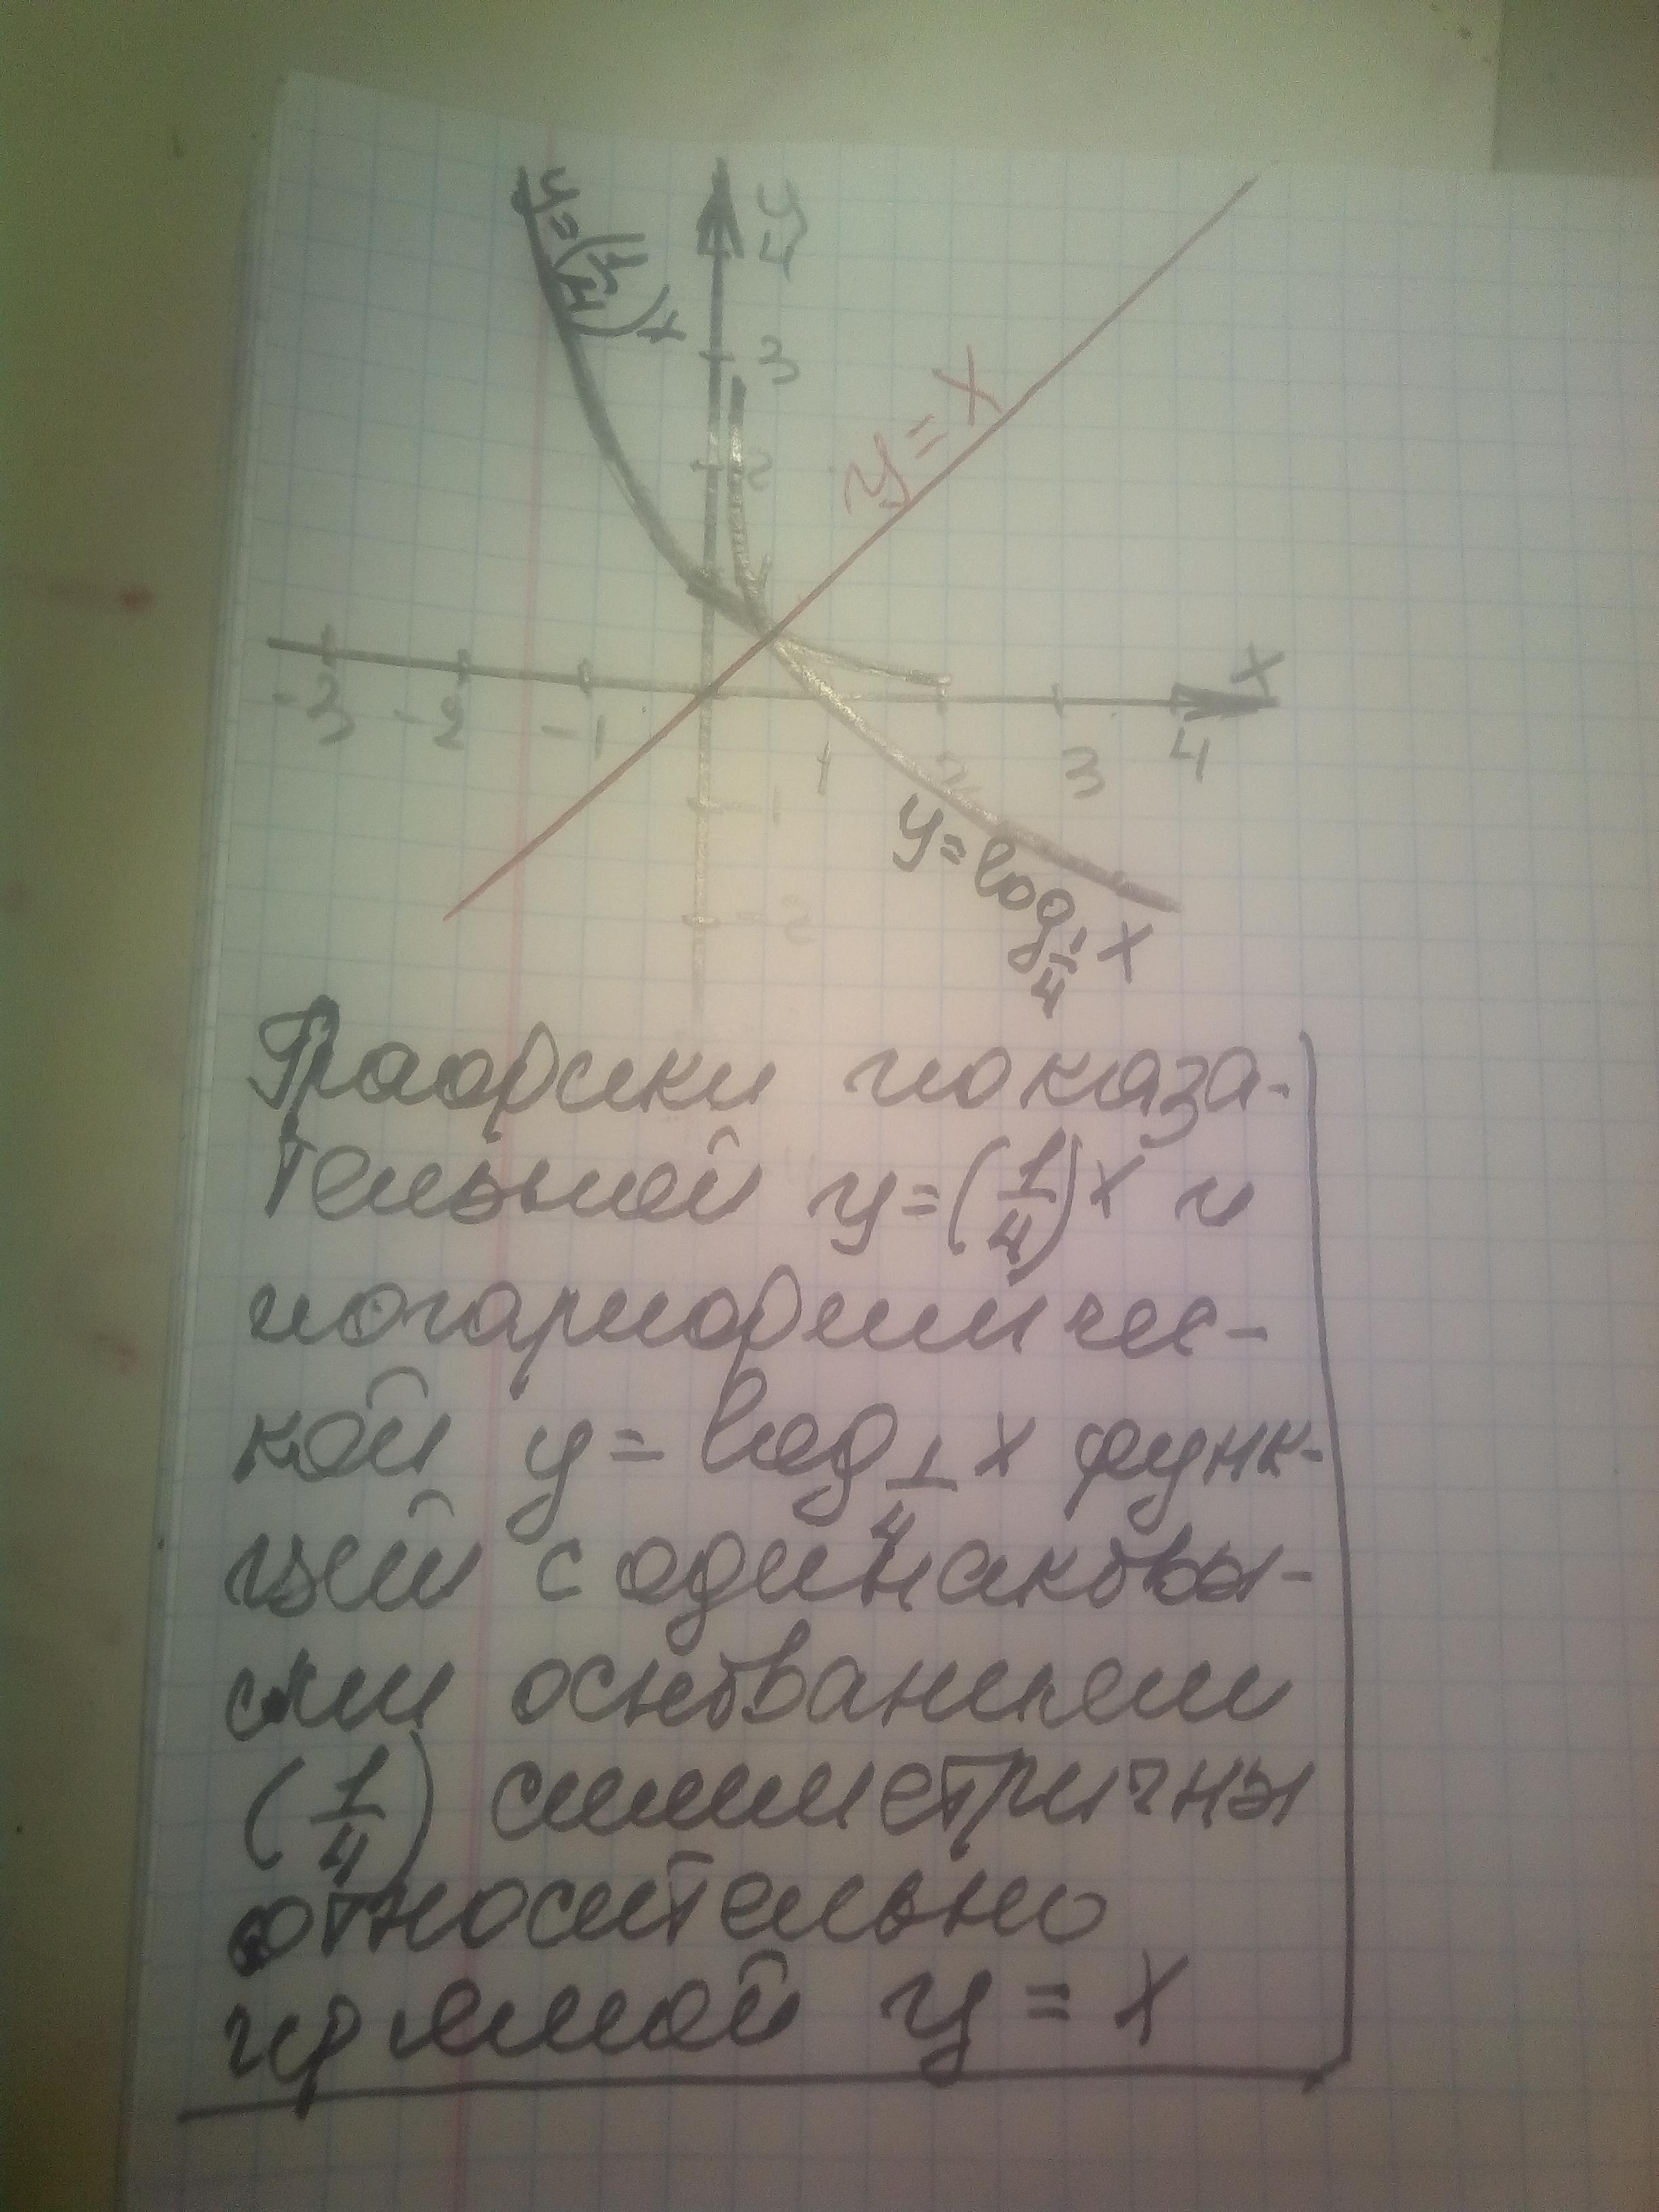 y
4
y=(1/4)^x
3
2
y=x
1
x
-3 -2 -1 1 2 3 4
-1
-2
y=log_1/4 x
Графики показа-
тельной y=(1/4)^x и
логарифмичес-
кой y=log_1/4 x функ-
ций с одинаковы-
ми основанием
(1/4) симметричны
относительно
прямой y=x